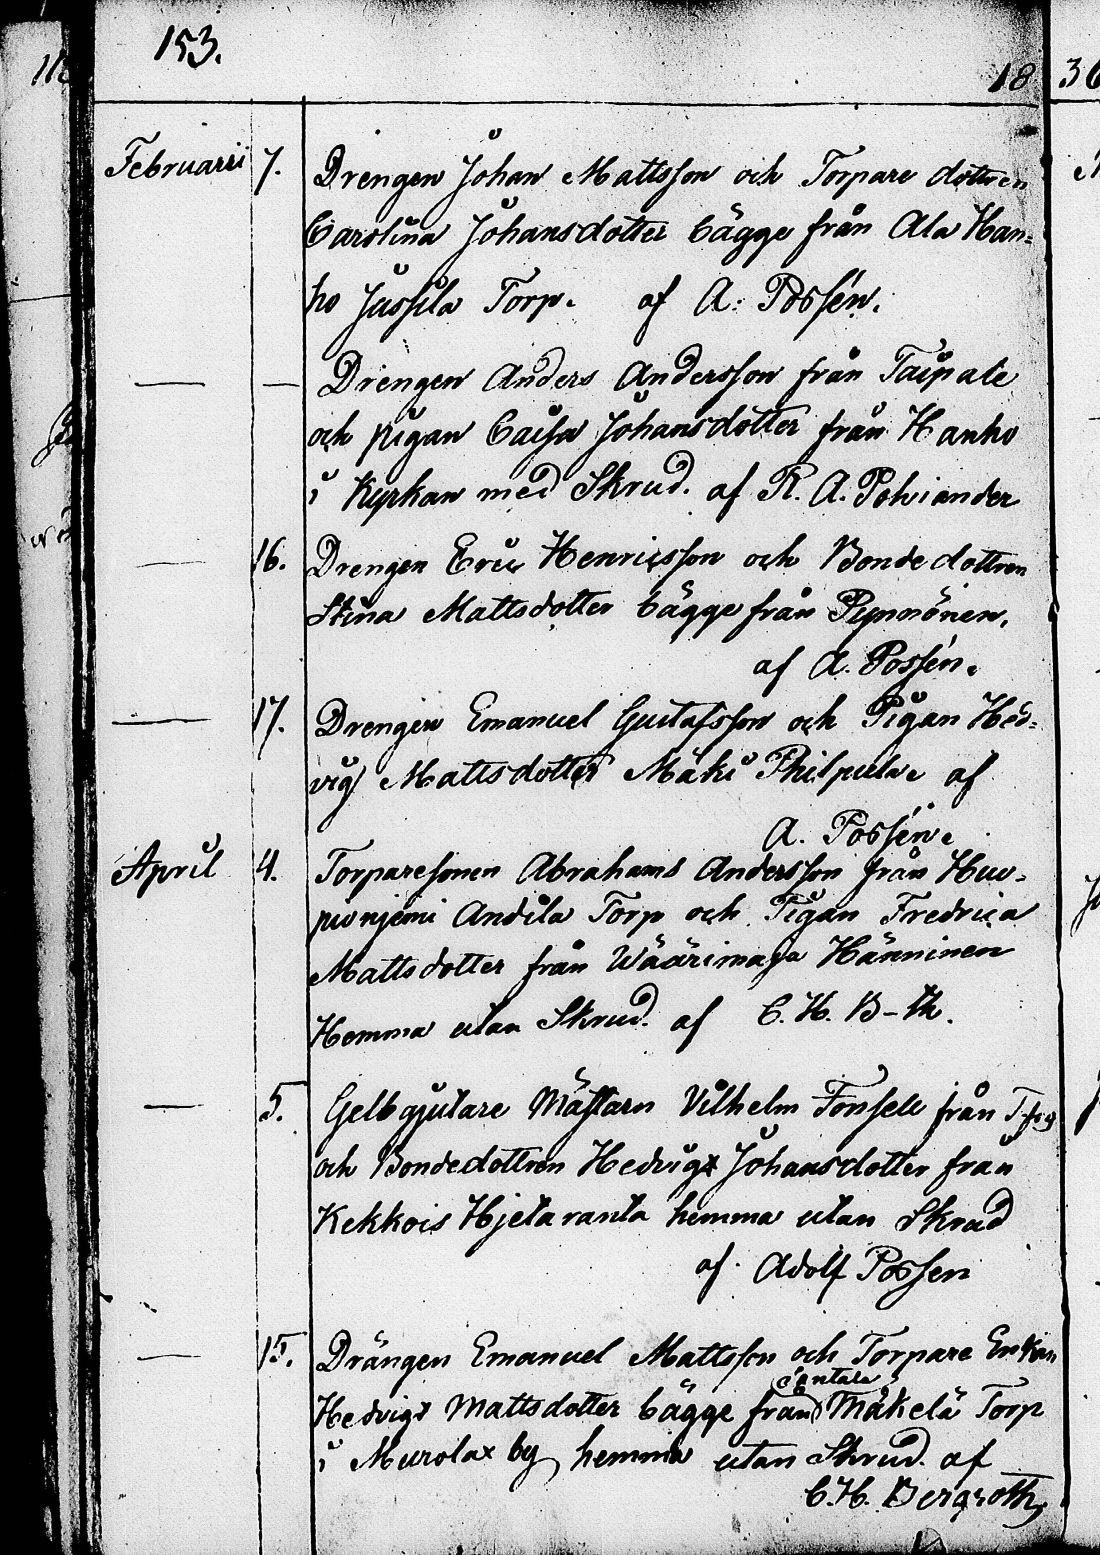 153.
18 36
Februarii 7. Drengen Johan Mattsson och Torpare dottren
Carolina Johansdotter bägge från Ala Han-
ho Jussila Torp. af A. Possén.
— — Drengen Anders Andersson från Taipale
och pigan Caisa Johansdotter från Hanho
i Kyrkan med Skrud. af R. A. Polviander
— 16. Drengen Eric Henricsson och Bondedottren
Stina Mattsdotter bägge från Pynnönen,
af A. Possén.
— 17. Drengen Emanuel Gustafsson och Pigan Hed-
vig Mattsdotter Mäki Philpula. af
A. Possén.
April 4. Torparesonen Abrahams Andersson från
Andila Torp och Pigan Fredrica
Mattsdotter från Wäärimaja Hänninen
Hemma utan Skrud. af C. H. B-th.
— 5. Gelbgjutare Mästarn Vilhelm Fonsell från
och Bondedottren Hedvig Johansdotter från
Kekkois Hjetaranta hemma utan Skrud
af. Adolf Possen
— 15. Drängen Emanuel Mattsson och Torpare Enkan
Hedvig Mattsdotter bägge från Mäkelä Torp
i Murola by hemma utan Skrud. af
C. H. Bergroth,